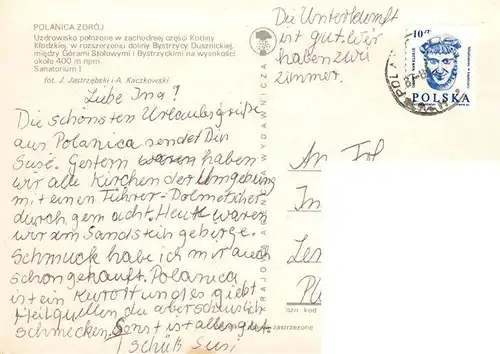 POLANICA ZDRÓJ
Uzdrowisko położone w zachodniej części Kotliny
Kłodzkiej, w rozszerzeniu doliny Bystrzycy Dusznickiej,
między Górami Stołowymi i Bystrzyckimi na wysokości
około 400 m npm
Sanatorium I
fot. J. Jastrzębski i A. Kaczkowski
Die Unterkunft
ist gut. Wir
haben zwei
Zimmer.
10 zł
POLSKA
Liebe Ina!
Die schönsten Urlaubsgrüße
aus Polanica sendet Dir
Susi. Gestern waren haben
wir alle Kirchen der Umgebung
mit einen Führer-Dolmetscher
durchgemacht. Heute waren
wir am Sandsteingebirge.
Schmuck habe ich mir auch
schon gekauft. Polanica
ist ein Kurort und es giebt
Heilquellen die aber scheuslich
schmecken. Sonst ist alles gut.
Tschüß Susi
An
KRAJOWA AGENCJA WYDAWNICZA
zastrzeżone